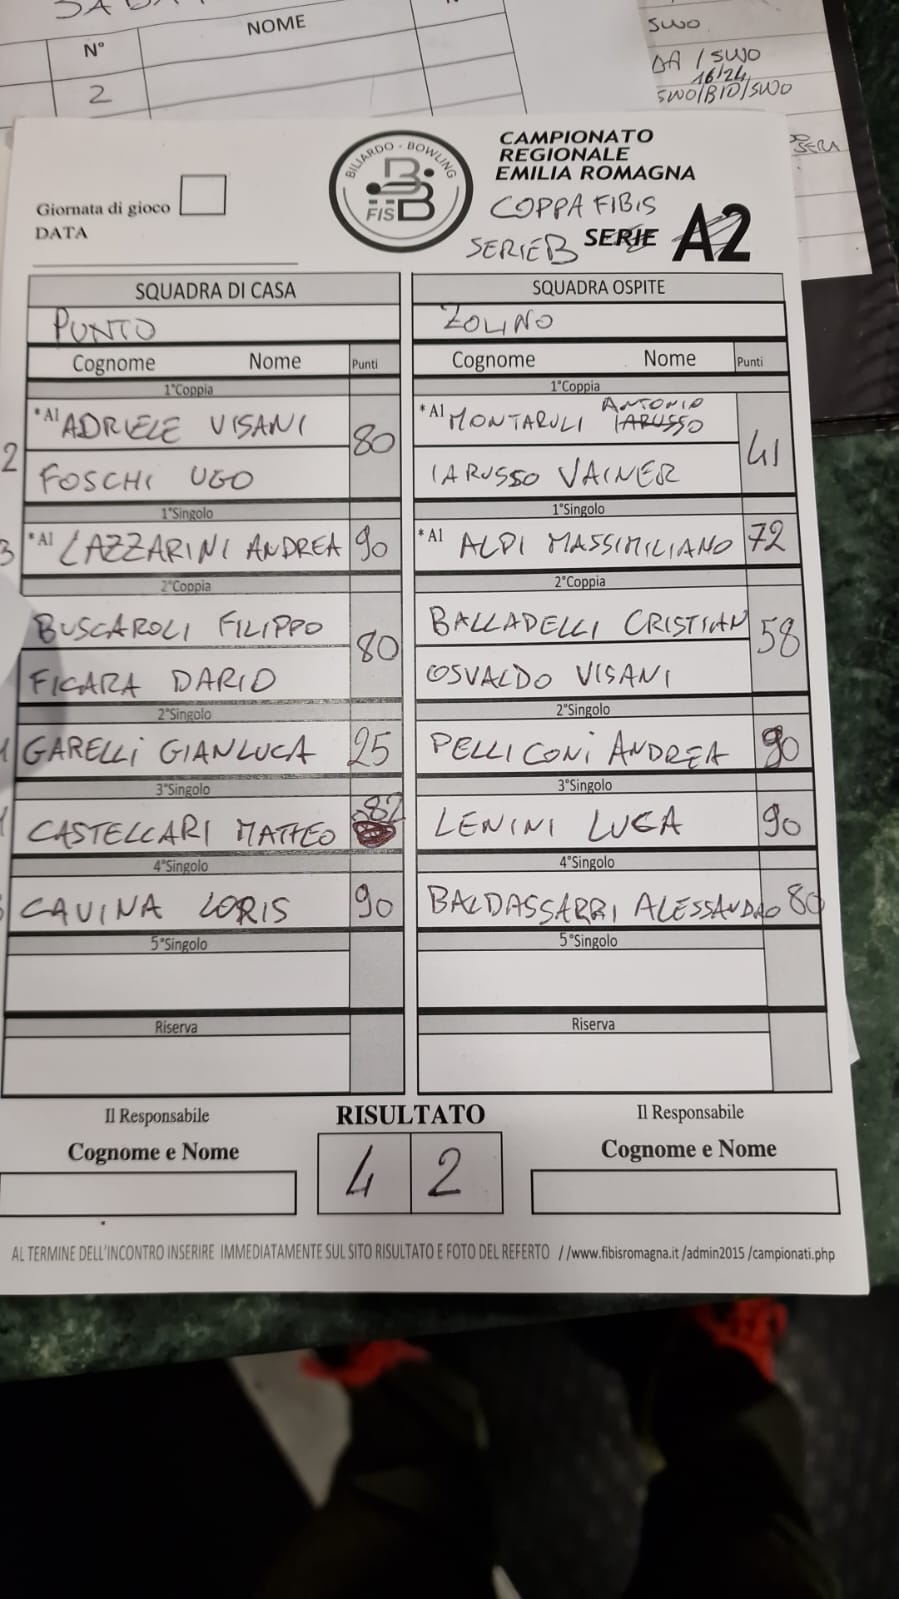 N°
NOME
2
SWO
DA / SWO
16/24
SWO/BIO/SWO
SERA
Giornata di gioco
DATA
BILIARDO - BOWLING
FISBB
CAMPIONATO
REGIONALE
EMILIA ROMAGNA
COPPA FIBIS
SERIE B SERIE A2
SQUADRA DI CASA
SQUADRA OSPITE
PUNTO
ZOLINO
Cognome Nome Punti
Cognome Nome Punti
1°Coppia
1°Coppia
*A1 ADRIELE VISANI
80
*A1 MONTARULI ANTONIO IARUSSO
41
2
FOSCHI UGO
IARUSSO VAINER
1°Singolo
1°Singolo
3 *A1 LAZZARINI ANDREA 90
*A1 ALPI MASSIMILIANO 72
2°Coppia
2°Coppia
BUSCAROLI FILIPPO
80
BALLADELLI CRISTIAN
58
FICARA DARIO
OSVALDO VISANI
2°Singolo
2°Singolo
GARELLI GIANLUCA 25
PELLICONI ANDREA 90
3°Singolo
3°Singolo
CASTELLARI MATTEO 82
LENINI LUCA 90
4°Singolo
4°Singolo
CAVINA LORIS 90
BALDASSARRI ALESSANDRO 80
5°Singolo
5°Singolo
Riserva
Riserva
Il Responsabile
RISULTATO
Il Responsabile
Cognome e Nome
4 2
Cognome e Nome
AL TERMINE DELL'INCONTRO INSERIRE IMMEDIATAMENTE SUL SITO RISULTATO E FOTO DEL REFERTO //www.fibisromagna.it /admin2015 /campionati.php